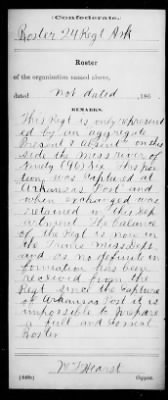 Confederate.
Roster 24 Regt Ark
Roster
of the organization named above,
dated not dated, 186
REMARKS.
This Regt is only represent
ed by an aggregate
present & absent on this
side the Miss River of
Ninety (90) This por
tion was captured at
Arkansas Post and
when exchanged was
retained in this Dep
artment. The balance
of the Regt is now in
the Trans. Miss. Dept
and as no definite in
formation has been
received from the
Regt since the capture
of Arkansas Post it is
impossible to prepare
a full and correct
Roster
Wm Hearst
Copyist.